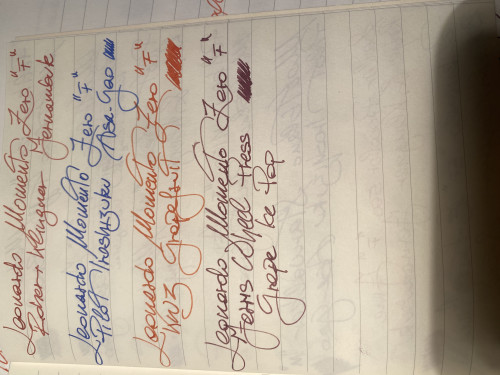 Leonardo Momento Zero "F"
Robert Klingner Fernambuk
Leonardo Momento Zero "F"
Pilot Iroshizuku Asa-Gao
Leonardo Momento Zero "F"
KWZ Grapefruit
Leonardo Momento Zero "F"
Ferris Wheel Press
Grape Ice Pop